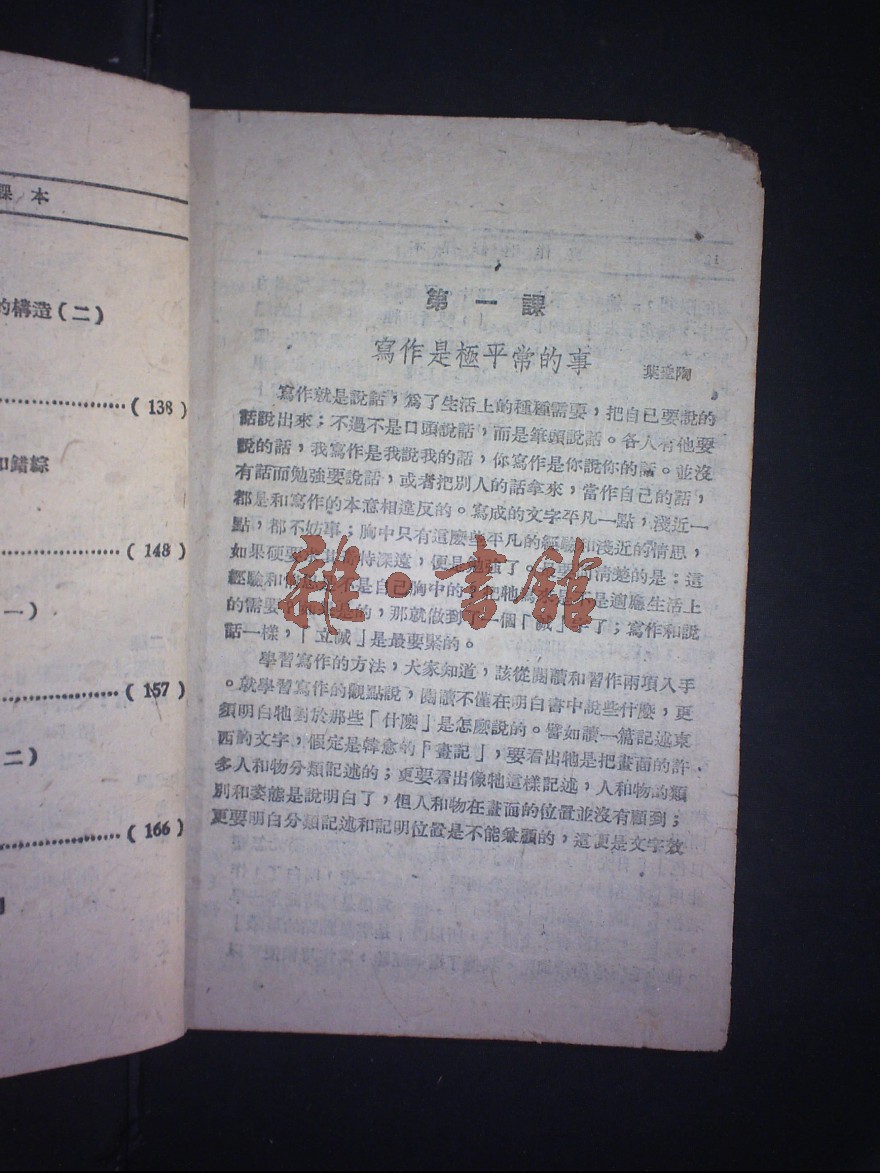 課本
的構造(二)
(138)
和錯綜
(148)
一)
(157)
二)
(166)
第一課
寫作是極平常的事
葉聖陶
寫作就是說話,為了生活上的種種需要,把自己要說的
話說出來;不過不是口頭說話,而是筆頭說話。各人有他要
說的話,我寫作是我說我的話,你寫作是你說你的話。並沒
有話而勉強要說話,或者把別人的話拿來,當作自己的話,
都是和寫作的本意相違反的。寫成的文字平凡一點,淺近一
點,都不妨事;胸中只有這麼些平凡的經驗和淺近的情思,
如果硬要深遠,便是勉強了。清楚的是:這
經驗和是不是自己胸中的適應生活上
的需要的,那就做到了一個「誠」字了;寫作和說
話一樣,「立誠」是最要緊的。
學習寫作的方法,大家知道,該從閱讀和習作兩項入手
。就學習寫作的觀點說,閱讀不僅在明白書中說些什麼,更
須明白牠對於那些「什麼」是怎麼說的。譬如讀一篇記述東
西的文字,假定是韓愈的「畫記」,要看出牠是把畫面的許
多人和物分類記述的;更要看出像牠這樣記述,人和物的類
別和姿態是說明白了,但人和物在畫面的位置並沒有顧到;
更要明白分類記述和記明位置是不能兼顧的,這便是文字效
雜·書館